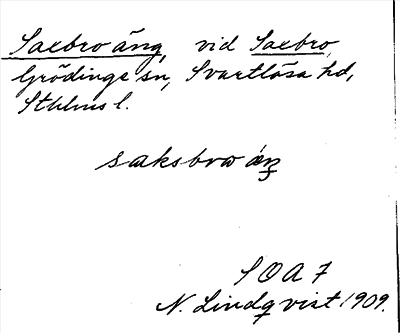 Saxbro äng, vid Saxbro,
Grödinge sn, Svartlösa hd,
Sthlms l.
saksbrω äŋ
S O A 7
N. Lindqvist 1909.